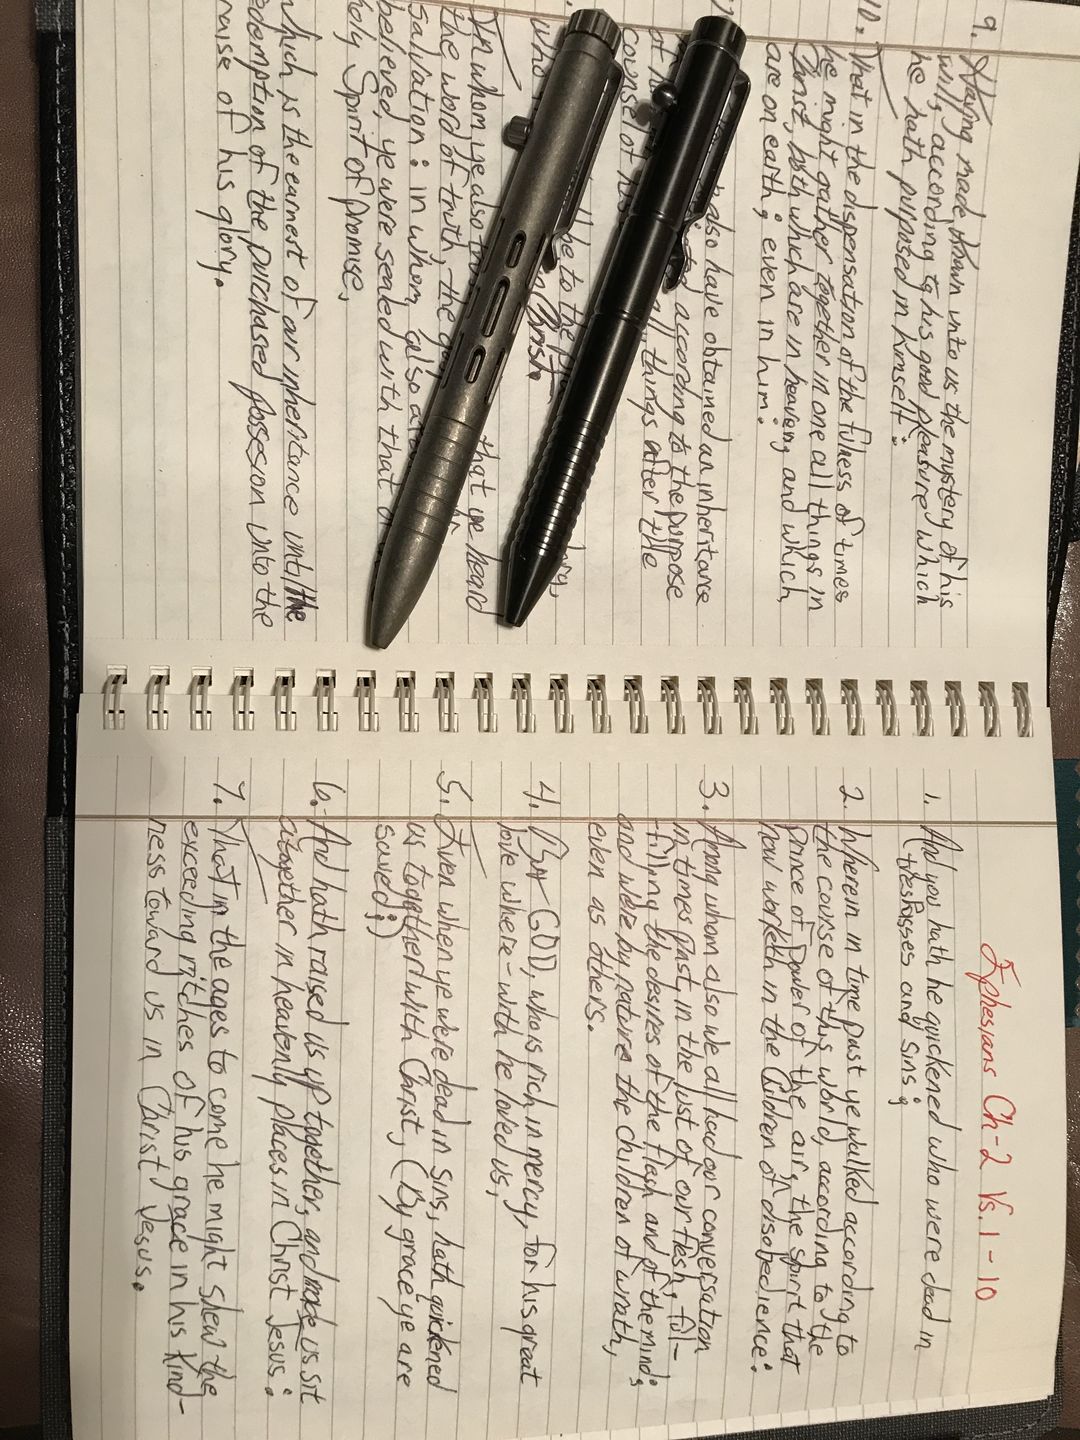 9. Having made known unto us the mystery of his
will, according to his good pleasure which
he hath purposed in himself:
10. That in the dispensation of the fulness of times
he might gather together in one all things in
Christ, both which are in heaven, and which
are on earth; even in him:
also have obtained an inheritance
according to the purpose
of things after the
counsel of his
be to the
who Christ.
In whom ye also that ye heard
the word of truth, the
salvation: in whom also
believed, ye were sealed with that
holy Spirit of promise,
which is the earnest of our inheritance until the
redemption of the purchased possesson unto the
praise of his glory.
Ephesians Ch-2 Vs. 1-10
1. And you hath he quickened who were dead in
trespasses and sins;
2. Wherein in time past ye walked according to
the course of this world, according to the
prince of power of the air, the spirit that
now worketh in the Children of disobedience:
3. Among whom also we all had our conversation
in times past, in the lust of our flesh, ful-
filling the desires of the flesh and of the mind;
and were by nature the children of wrath,
even as others.
4. But GOD, who is rich in mercy, for his great
love where-with he loved us,
5. Even when we were dead in sins, hath quickened
us together with Christ, (By grace ye are
saved;)
6. And hath raised us up together, and made us sit
together in heavenly places in Christ Jesus:
7. That in the ages to come he might shew the
exceeding ritches of his grace in his kind-
ness toward us in Christ Jesus.